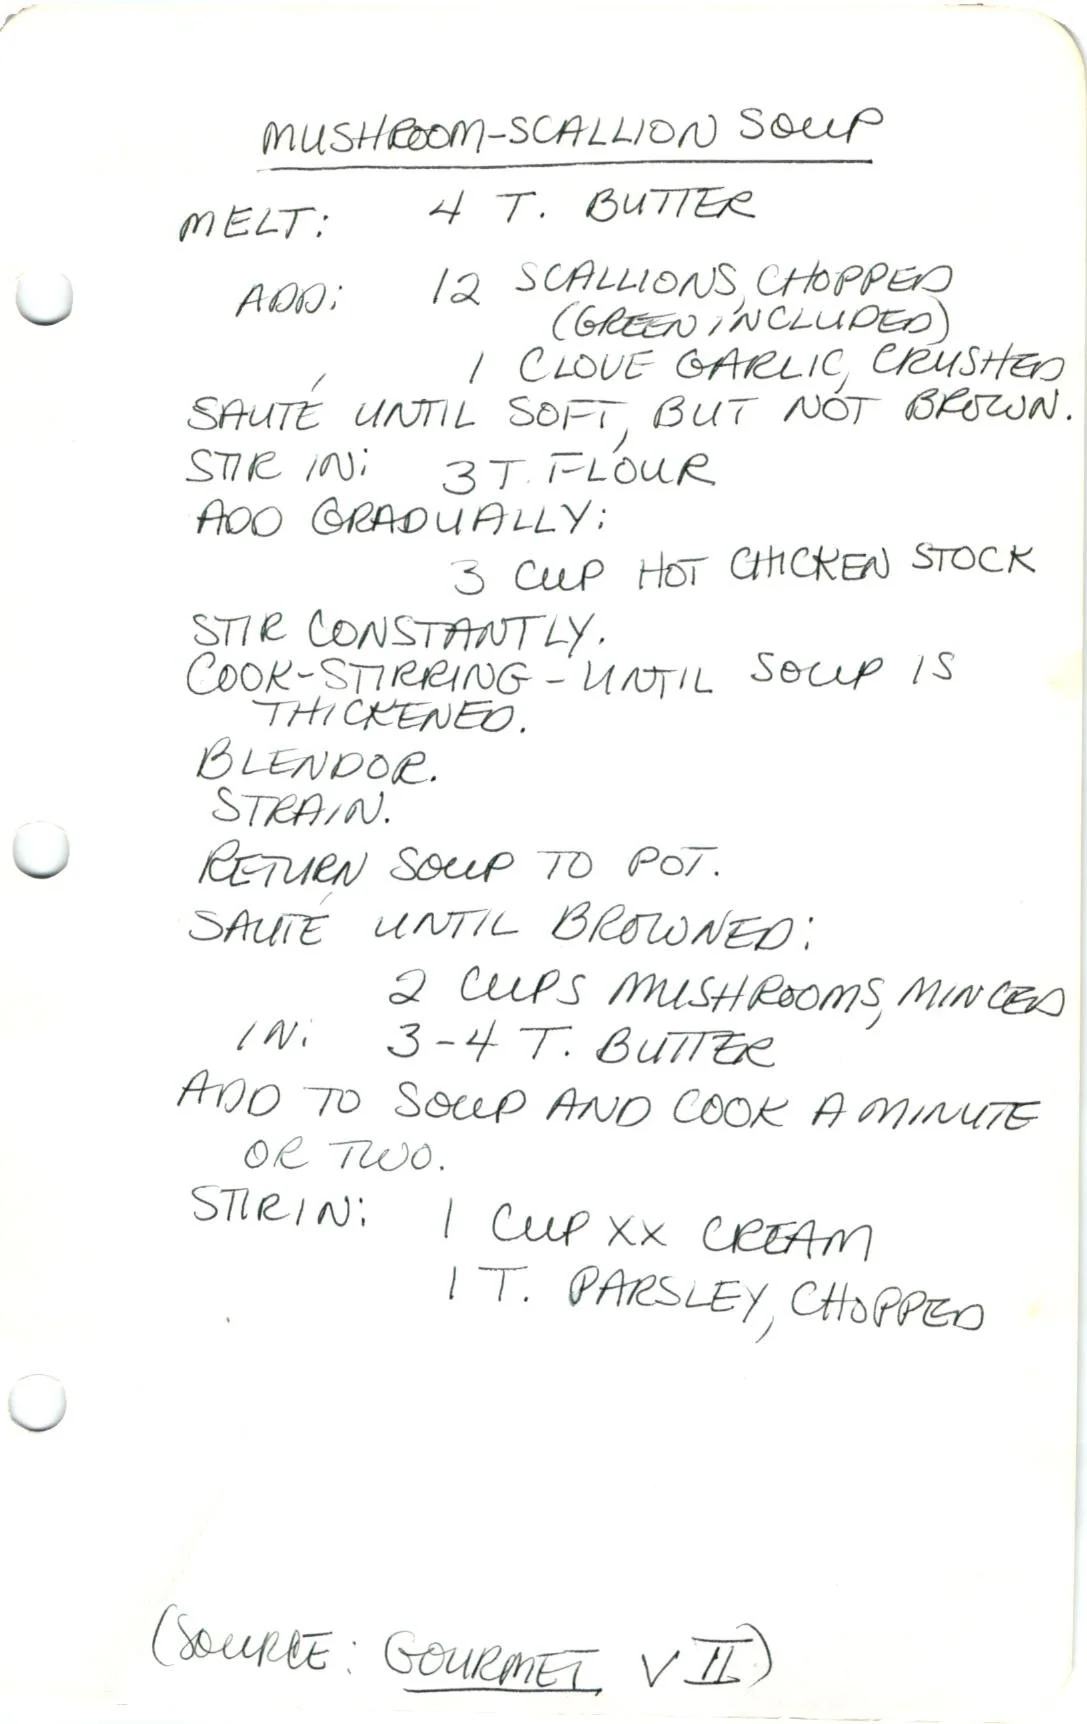 MUSHROOM-SCALLION SOUP
MELT: 4 T. BUTTER
ADD: 12 SCALLIONS, CHOPPED
(GREEN INCLUDED)
1 CLOVE GARLIC, CRUSHED
SAUTÉ UNTIL SOFT, BUT NOT BROWN.
STIR IN: 3 T. FLOUR
ADD GRADUALLY:
3 CUP HOT CHICKEN STOCK
STIR CONSTANTLY.
COOK-STIRRING-UNTIL SOUP IS
THICKENED.
BLENDOR.
STRAIN.
RETURN SOUP TO POT.
SAUTÉ UNTIL BROWNED:
2 CUPS MUSHROOMS, MINCED
IN: 3-4 T. BUTTER
ADD TO SOUP AND COOK A MINUTE
OR TWO.
STIR IN: 1 CUP XX CREAM
1 T. PARSLEY, CHOPPED
(SOURCE: GOURMET VII)